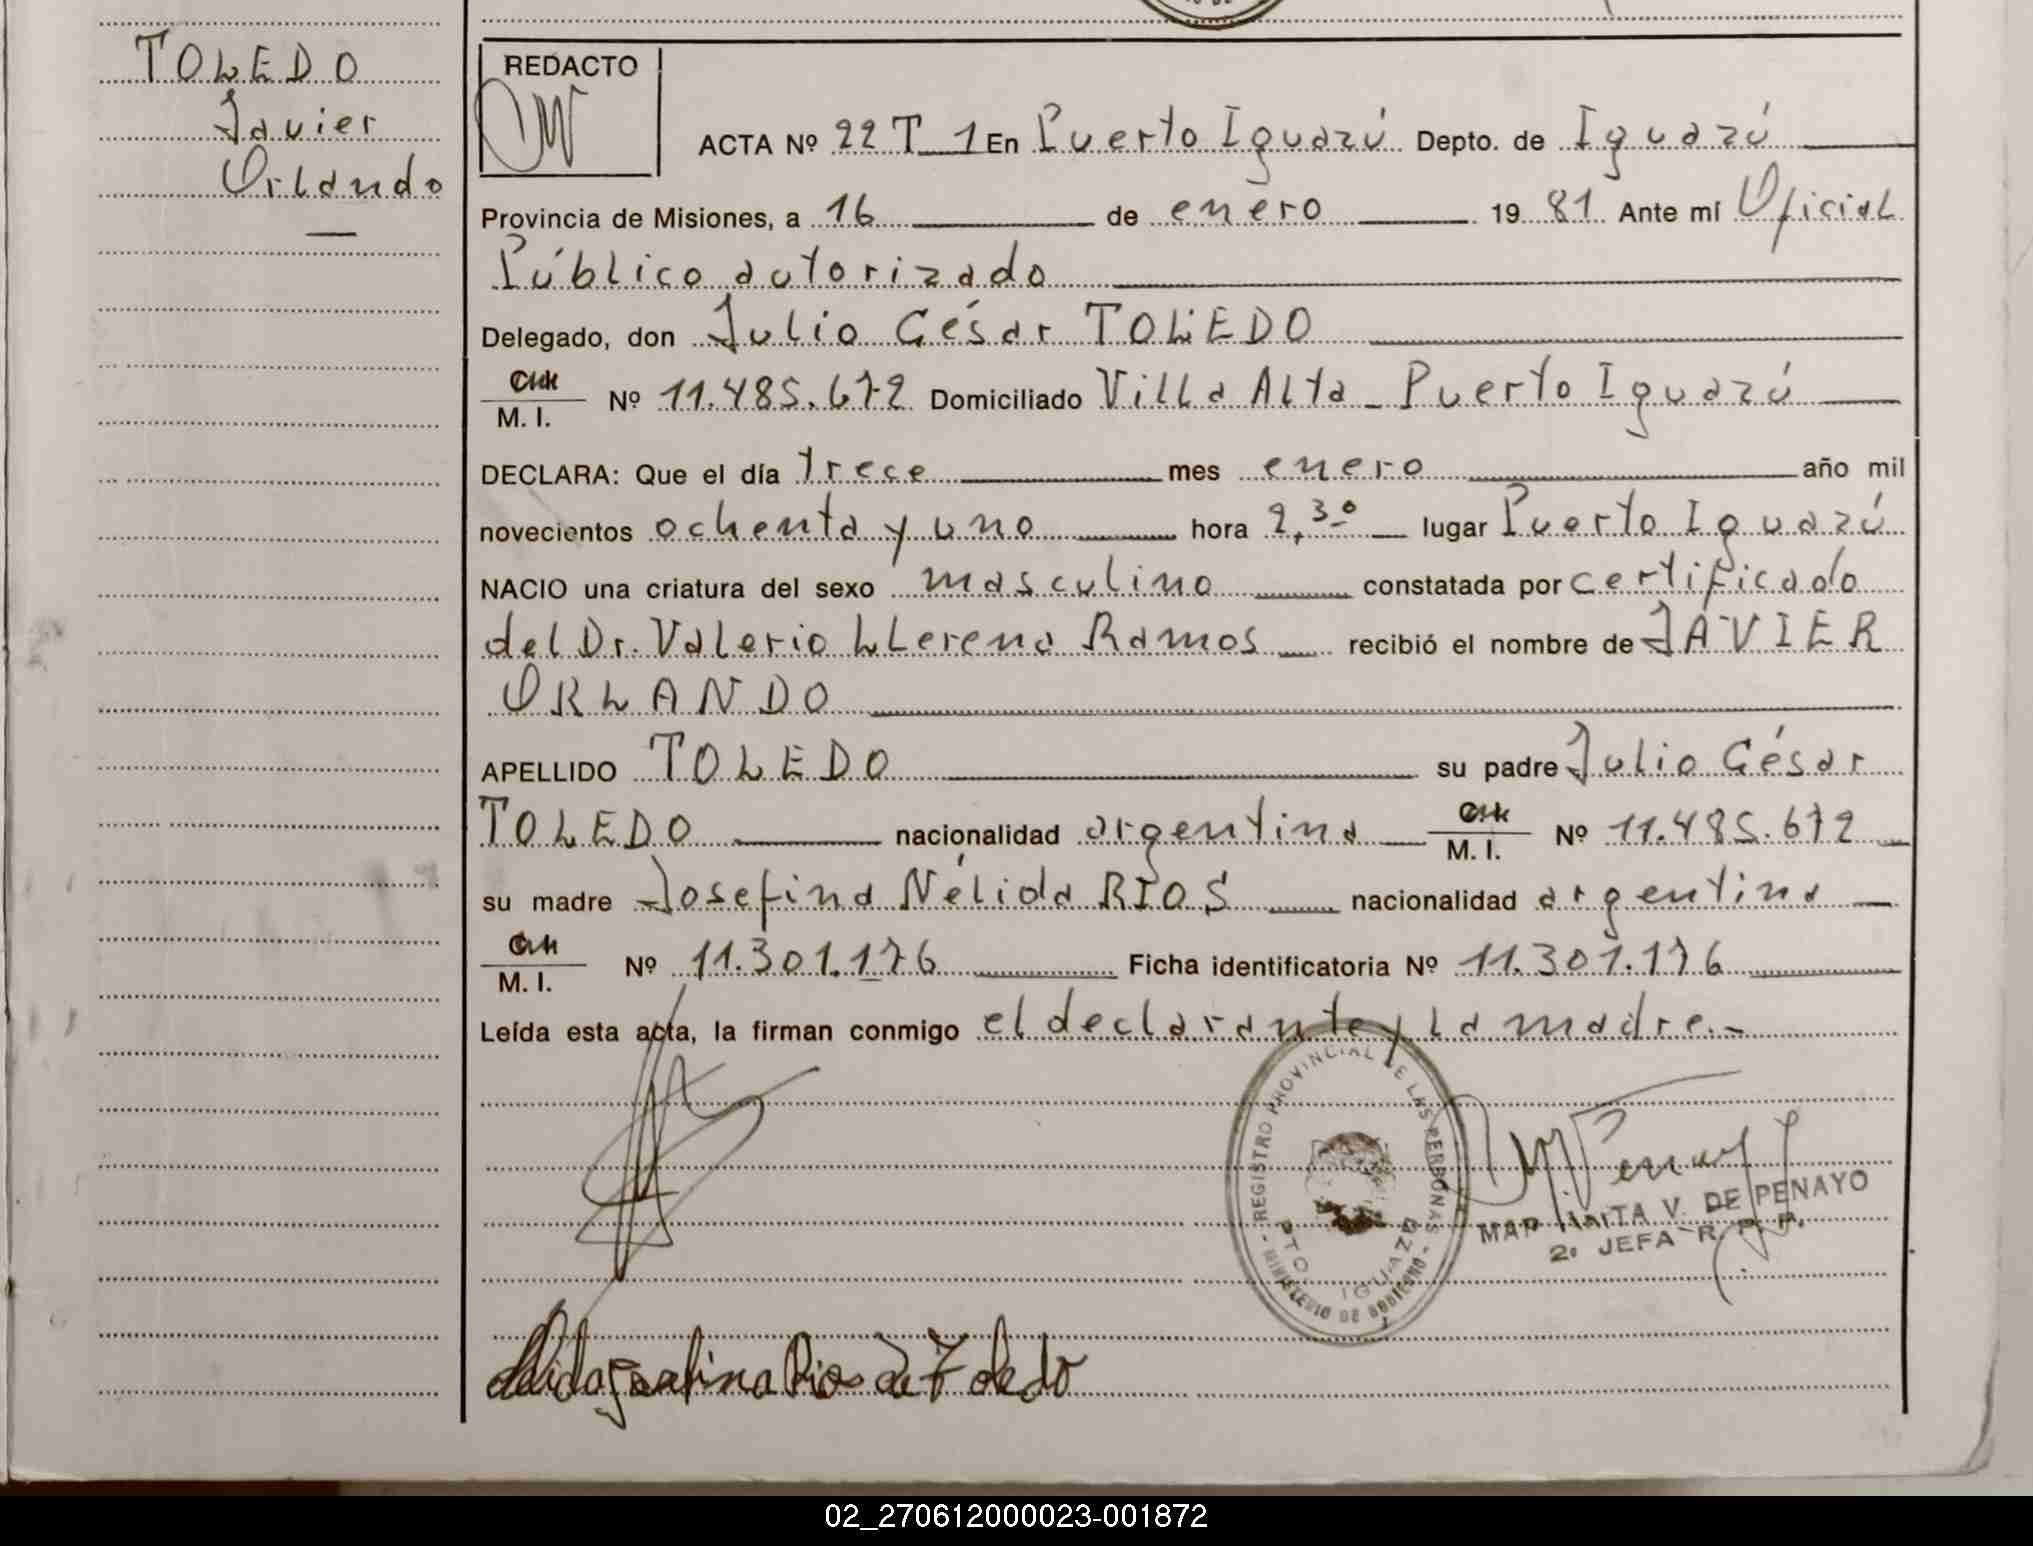 TOLEDO
Javier
Orlando
REDACTO
ACTA Nº 22 T 1 En Puerto Iguazú Depto. de Iguazú
Provincia de Misiones, a 16 de enero 1981 Ante mí Oficial
Público autorizado
Delegado, don Julio César TOLEDO
M. I. Nº 11.485.672 Domiciliado Villa Alta - Puerto Iguazú
DECLARA: Que el día trece mes enero año mil
novecientos ochenta y uno hora 2,30 lugar Puerto Iguazú
NACIO una criatura del sexo masculino constatada por certificado
del Dr. Valerio Llerena Ramos recibió el nombre de JAVIER
ORLANDO
APELLIDO TOLEDO su padre Julio César
TOLEDO nacionalidad argentina M. I. Nº 11.485.672
su madre Josefina Nélida RIOS nacionalidad argentina
M. I. Nº 11.301.176 Ficha identificatoria Nº 11.301.176
Leída esta acta, la firman conmigo el declarante y la madre.-
REGISTRO PROVINCIAL DE LAS PERSONAS
PTO. IGUAZU
- MINISTERIO DE GOBIERNO -
V. DE PENAYO
2º JEFA R. P. P.
Rios de Toledo
02_270612000023-001872